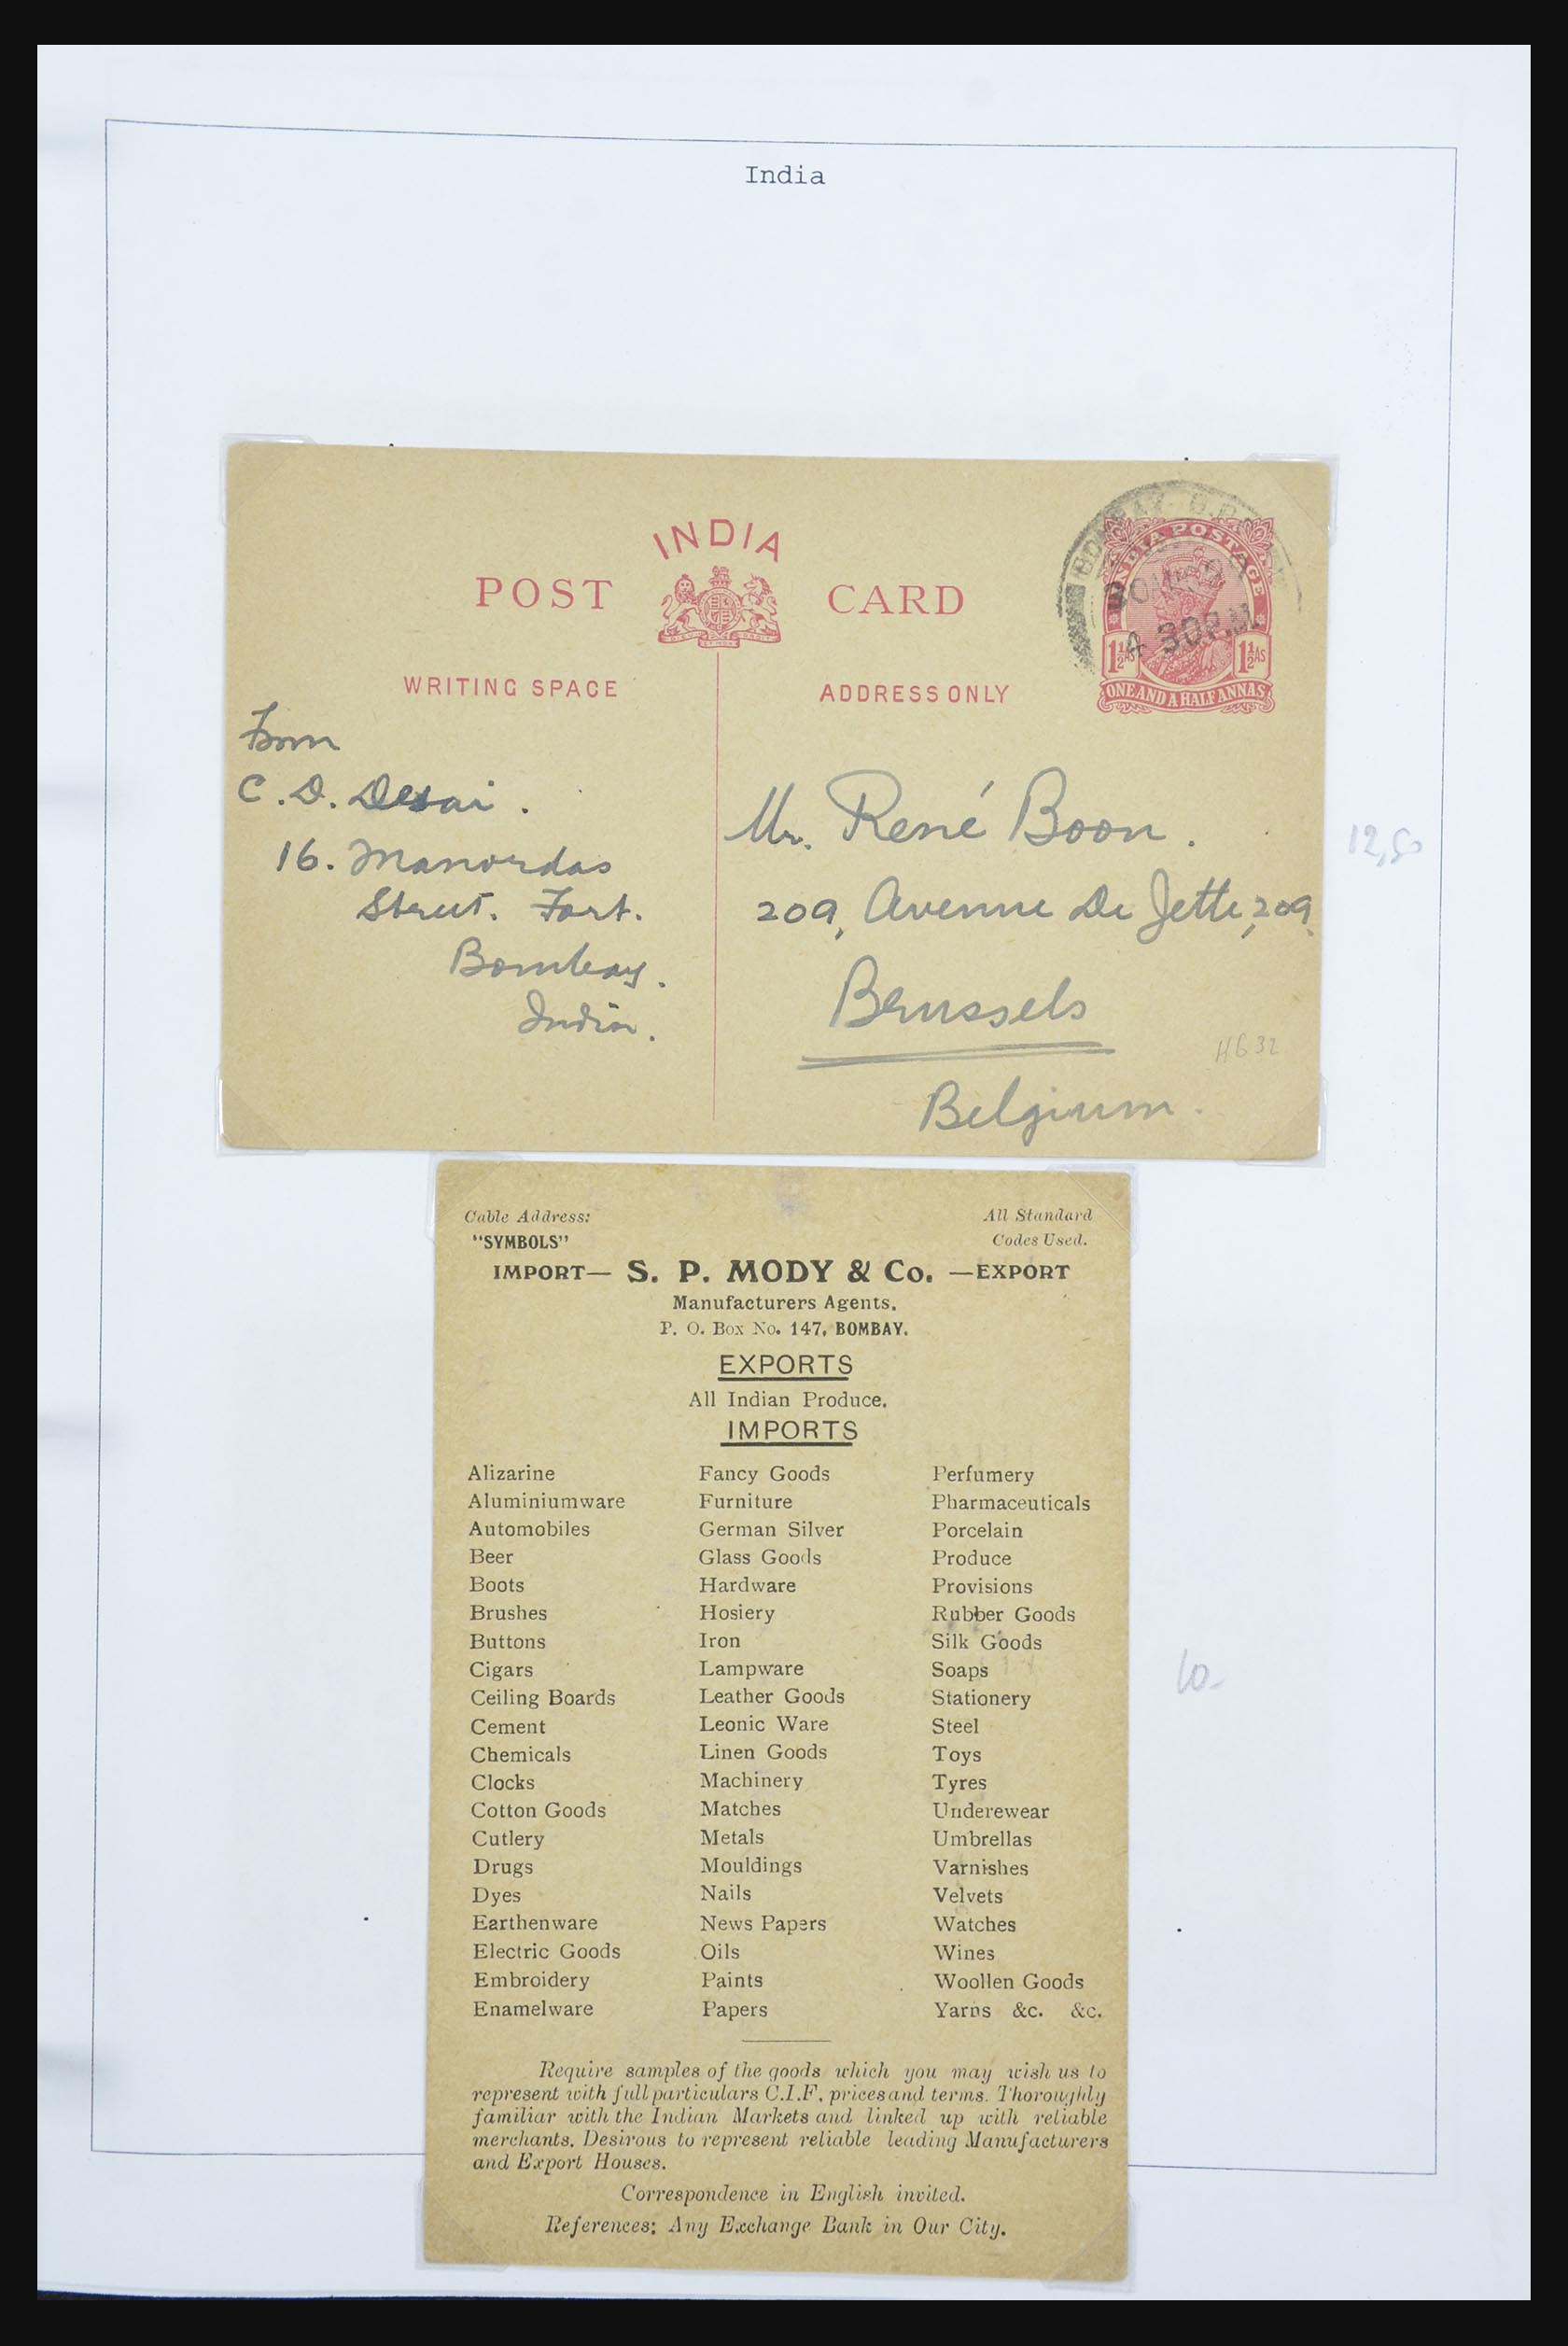 India
INDIA
POST CARD
WRITING SPACE
ADDRESS ONLY
BOMBAY G.P.
4 30 P.M.
INDIA POSTAGE
1½ As 1½ As
ONE AND A HALF ANNAS
From
C. D. Desai.
16. Manordas
Street. Fort.
Bombay.
India.
Mr. René Boon.
209, Avenue De Jette, 209.
Brussels
Belgium.
HG 32
12,50
Cable Address:
"SYMBOLS"
All Standard
Codes Used.
IMPORT— S. P. MODY & Co. —EXPORT
Manufacturers Agents.
P. O. Box No. 147, BOMBAY.
EXPORTS
All Indian Produce.
IMPORTS
Alizarine
Aluminiumware
Automobiles
Beer
Boots
Brushes
Buttons
Cigars
Ceiling Boards
Cement
Chemicals
Clocks
Cotton Goods
Cutlery
Drugs
Dyes
Earthenware
Electric Goods
Embroidery
Enamelware
Fancy Goods
Furniture
German Silver
Glass Goods
Hardware
Hosiery
Iron
Lampware
Leather Goods
Leonic Ware
Linen Goods
Machinery
Matches
Metals
Mouldings
Nails
News Papers
Oils
Paints
Papers
Perfumery
Pharmaceuticals
Porcelain
Produce
Provisions
Rubber Goods
Silk Goods
Soaps
Stationery
Steel
Toys
Tyres
Underewear
Umbrellas
Varnishes
Velvets
Watches
Wines
Woollen Goods
Yarns &c. &c.
10-
Require samples of the goods which you may wish us to
represent with full particulars C.I.F. prices and terms. Thoroughly
familiar with the Indian Markets and linked up with reliable
merchants. Desirous to represent reliable leading Manufacturers
and Export Houses.
Correspondence in English invited.
References: Any Exchange Bank in Our City.